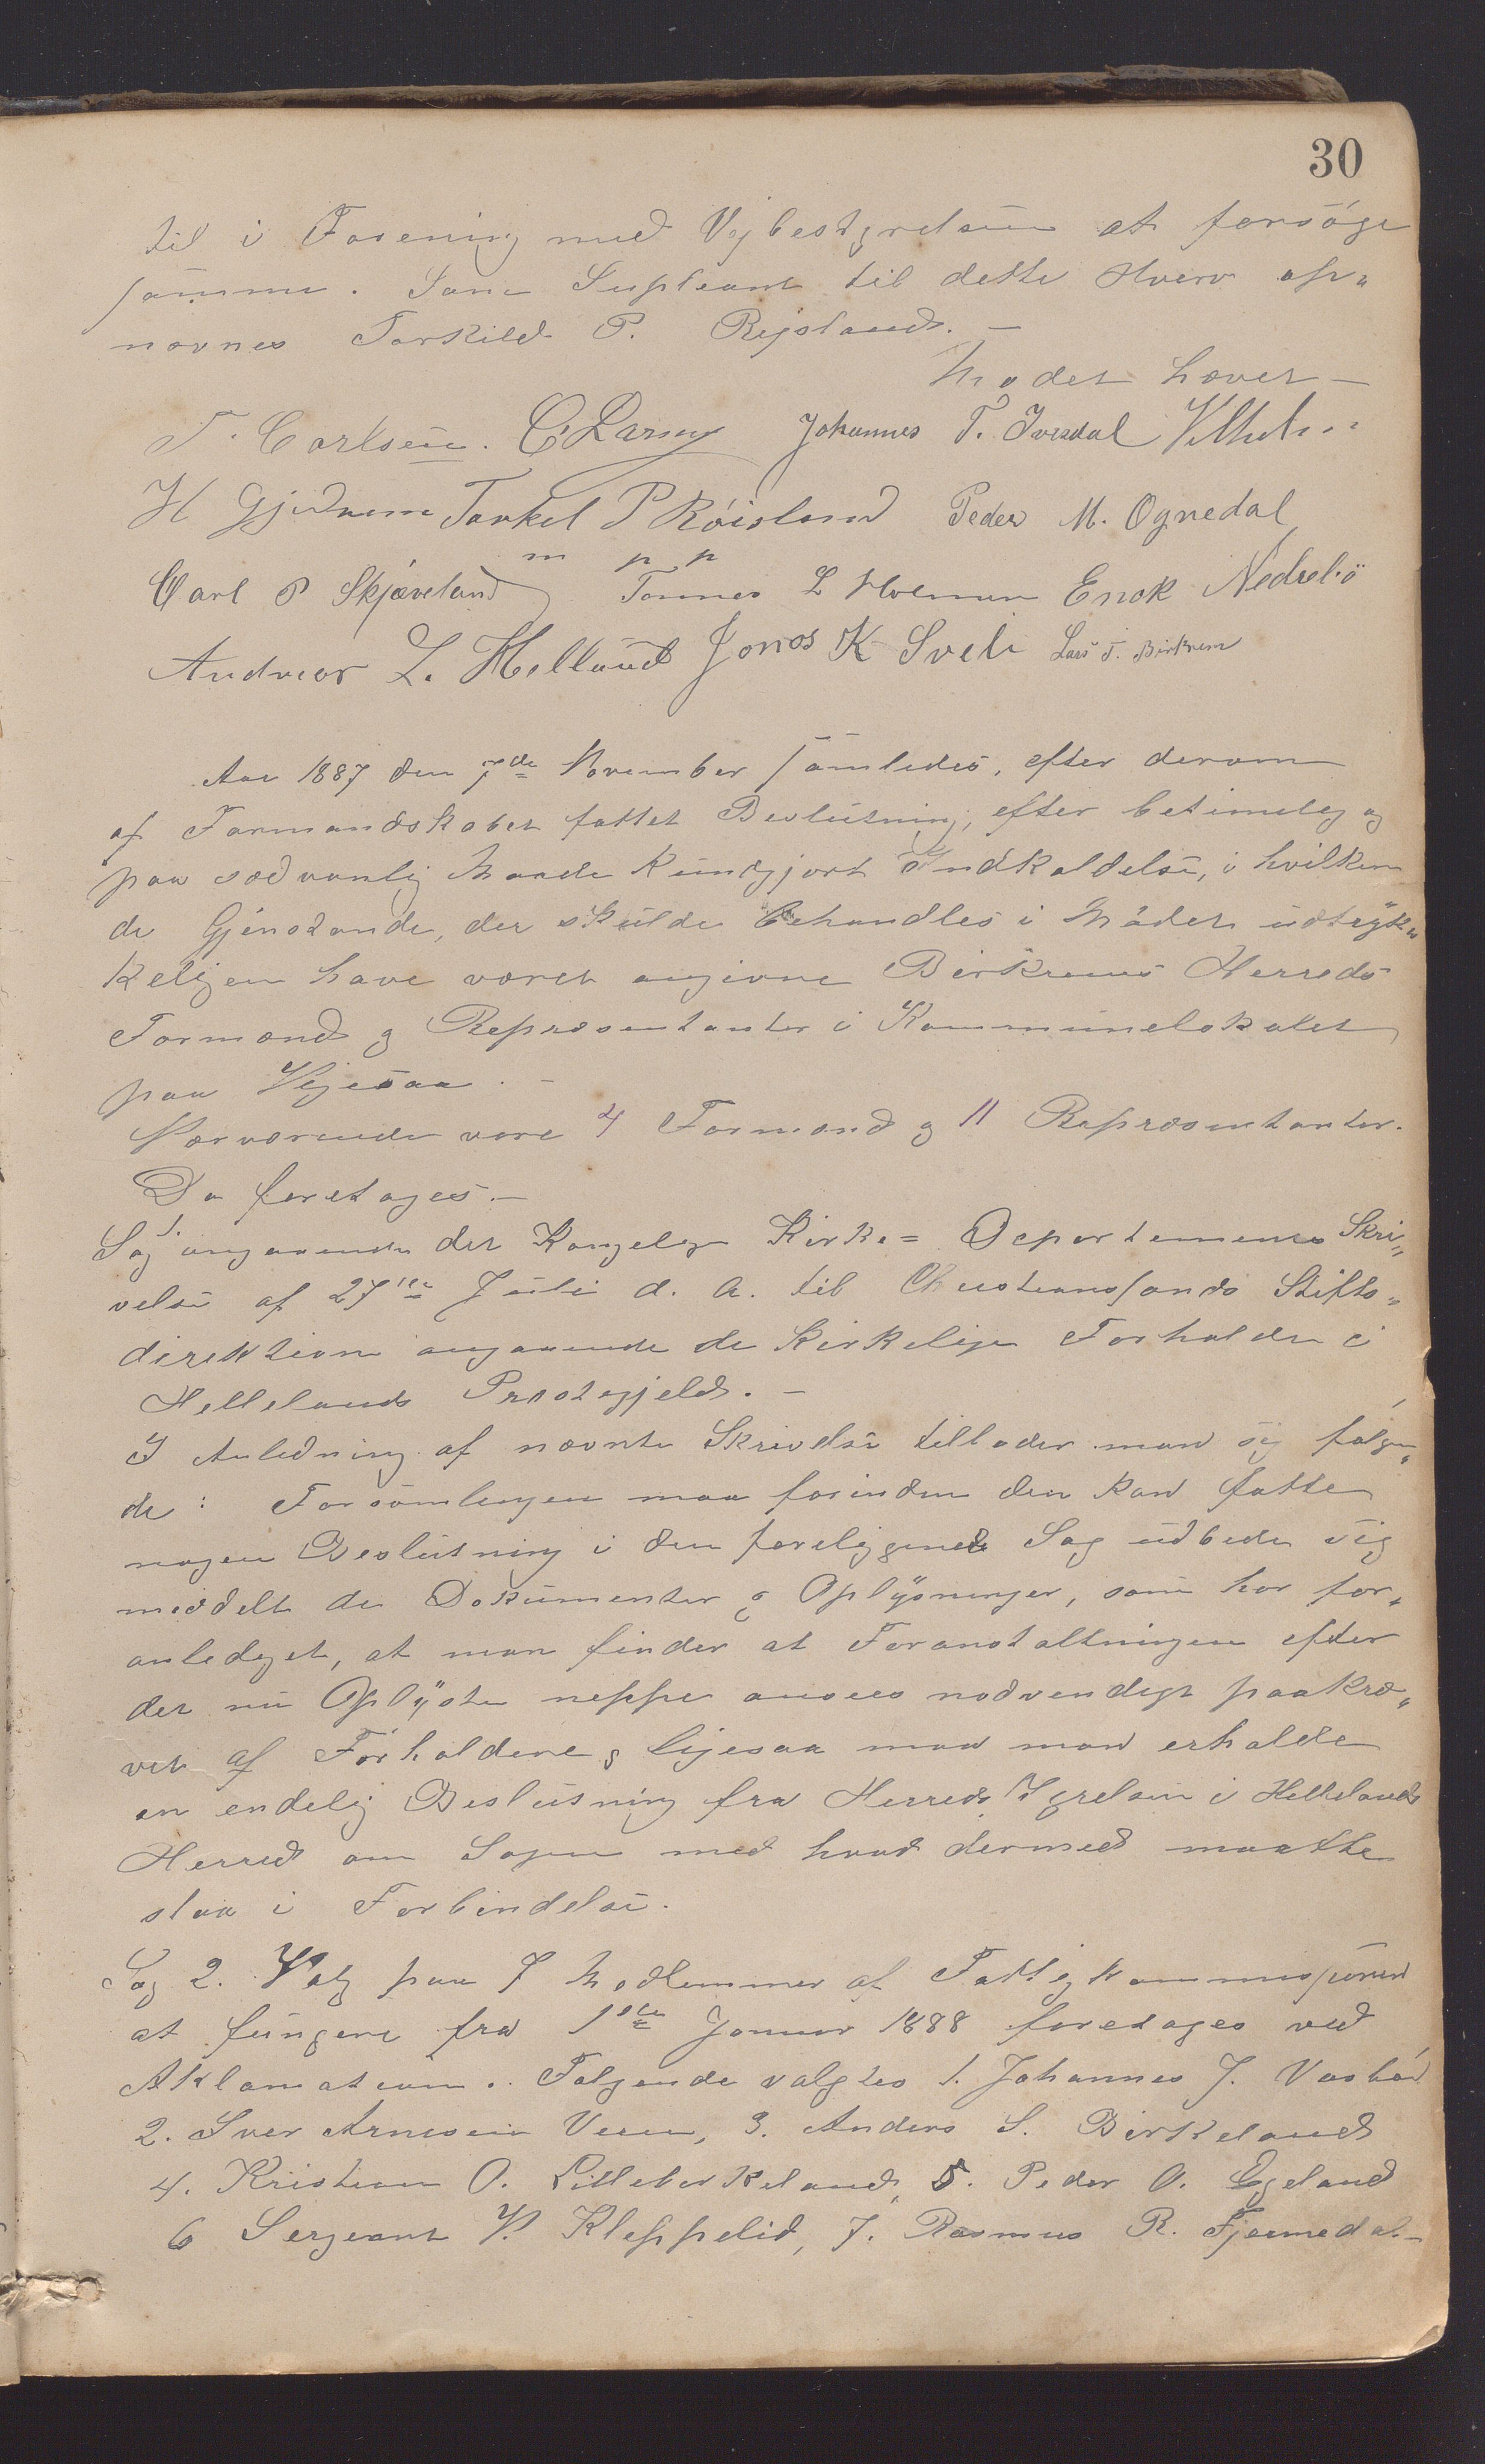 30
til i Forening med Vejbestyrelsen at forsöge
samme. Som Supleant til dette Hverv op„
nævnes Torkild P. Røjsland. —
Mødet hævet —
T. Carlsen. C Larsen Johannes T. Ivesdal Vilhelm
H Gjedrem Torkel P Røisland Peder M. Ognedal
m p p
Carl P Skjæveland Tønnes L Holmen Enok Nedrebö
Andreas L. Helland Jonas K Sveli Lars T. Birkrem
Aar 1887 den 7de November samledes, efter derom
af Formandskabet fattet Beslutning, efter betimelig og
paa sædvanlig Maade kundgjort Indkaldelse, i hvilken
de Gjenstande, der skulde behandles i Mödet udtryk„
keligen have været angivne Birkrems Herreds
Formænd og Repræsentanter i Kommunelokalet
paa Vigesaa. —
Nærværende vare 4 Formænd og 11 Repræsentanter.
Da foretages. —
Sag 1. angaaende det Kongelige Kirke= Departements Skri„
velse af 27de Juli d. A. til Christianssands Stifts„
direktion angaaende de kirkelige Forholde i
Hellelands Præstegjeld. —
I Anledning af nævnte Skrivelse tillader man sig følgen„
de: Forsamlingen maa forinden den kan fatte
nogen Beslutning i den foreliggende Sag udbede sig
meddelt de Dokumenter og Oplysninger, som har for„
anlediget, at man finder at Foranstaltningen efter
det nu Oplyste neppe ansees nødvendigt paakræ„
vet af Forholdene, ligesaa maa man erholde
en endelig Beslutning fra Herredsstyrelsen i Hellelands
Herred om Sagen med hvad dermed maatte
staa i Forbindelse.
Sag 2. Valg paa 7 Medlemmer af Fattigkommissionen
at fungere fra 1ste Januar 1888 foretages ved
Aklamation. Følgende valgtes 1. Johannes J. Vasbö
2. Iver Arnesen Veen, 3. Anders S. Birkeland
4. Kristian O. Litlebirkeland, 5. Peder O. Egeland
6 Sergeant V. Kleppelid, 7. Rasmus R. Fjermedal. —